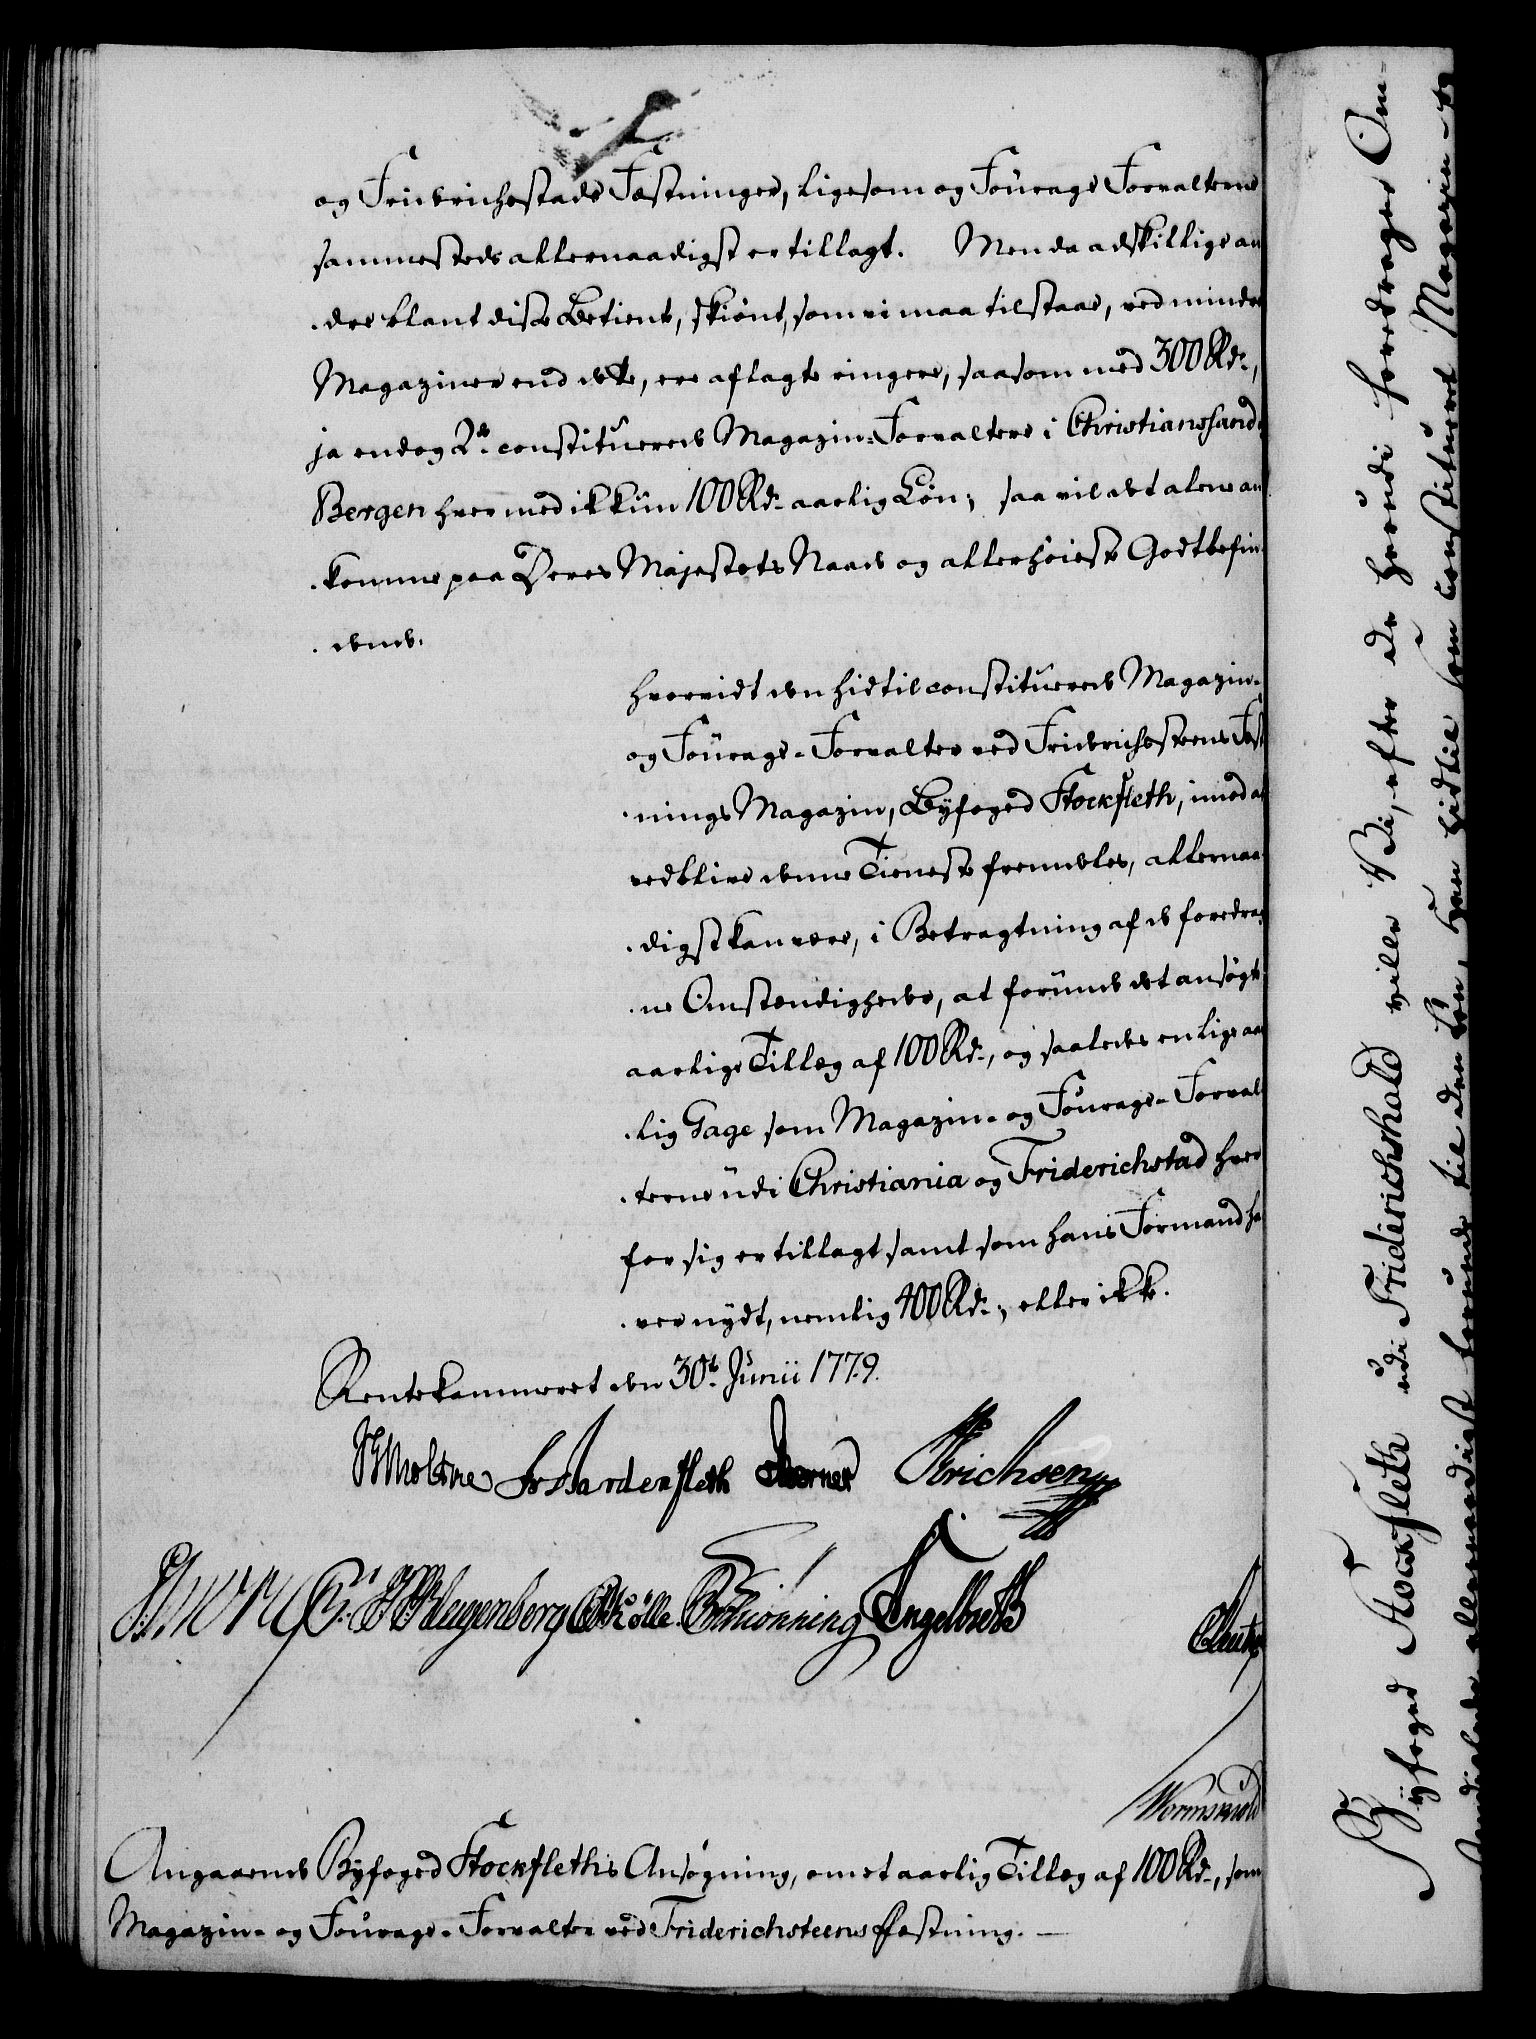 og Friderichestads Fæstninger, ligesom og Fourage Forvalterne
sammesteds allernaadigst er tillagt. Men da adskillige an
der blant disse Betiente, skiönt, som vi maa tilstaae, ved mindre
Magaziner end dette, ere aflagte ringere, saasom med 300 Rd.,
ja endog 2de constituerede Magazin-Forvaltere i Christianssand
Bergen hver med ikkun 100 Rd. aarlig Lön; saa vil det alene an
komme paa Deres Majestets Naade og allerhöieste Godtbefin-
dende.
Hvorvidt den hidtil constituerede Magazin-
og Fourage-Forvalter ved Friderichsteens Fæst
nings Magazin, Byfoged Stockfleth, imod at
vedblive denne Tieneste fremdeles, allernaa-
digst kan være, i Betragtning af de foredrag
ne Omstændigheder, at forunde det ansögte
aarlige Tillæg af 100 Rd., og saaledes en lige aar
lig Gage som Magazin- og Fourage-Forval
terne udi Christiania og Friderichstad hver
for sig er tillagt samt som hans Formand ha
ver nydt, nemlig 400 Rd., eller ikke.
Rentekammeret den 30te Junii 1779.
Moltke Fr Hardenfleth Berner Erichsen
G. Klagenborg Kölle Schiönning Engelbreth
Wormskiold
Angaaende Byfoged Stockfleths Ansögning, om et aarlig Tillæg af 100 Rd., som
Magazin- og Fourage-Forvalter ved Friderichsteens Fæstning.
Byfoged Stockfleth udi Friderichshald ville Vi, efter de herudi foredragne Om-
stændigheder allernaadigst forunde til den Lön, han hidtil som constitueret Magazin- og